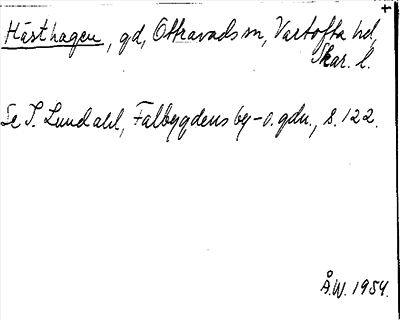 +
Hästhagen, gd, Ottravads sn, Vartofta hd,
Skar. l.
Se I. Lundahl, Falbygdens by- o. gdn., s. 122.
Å.W. 1954.